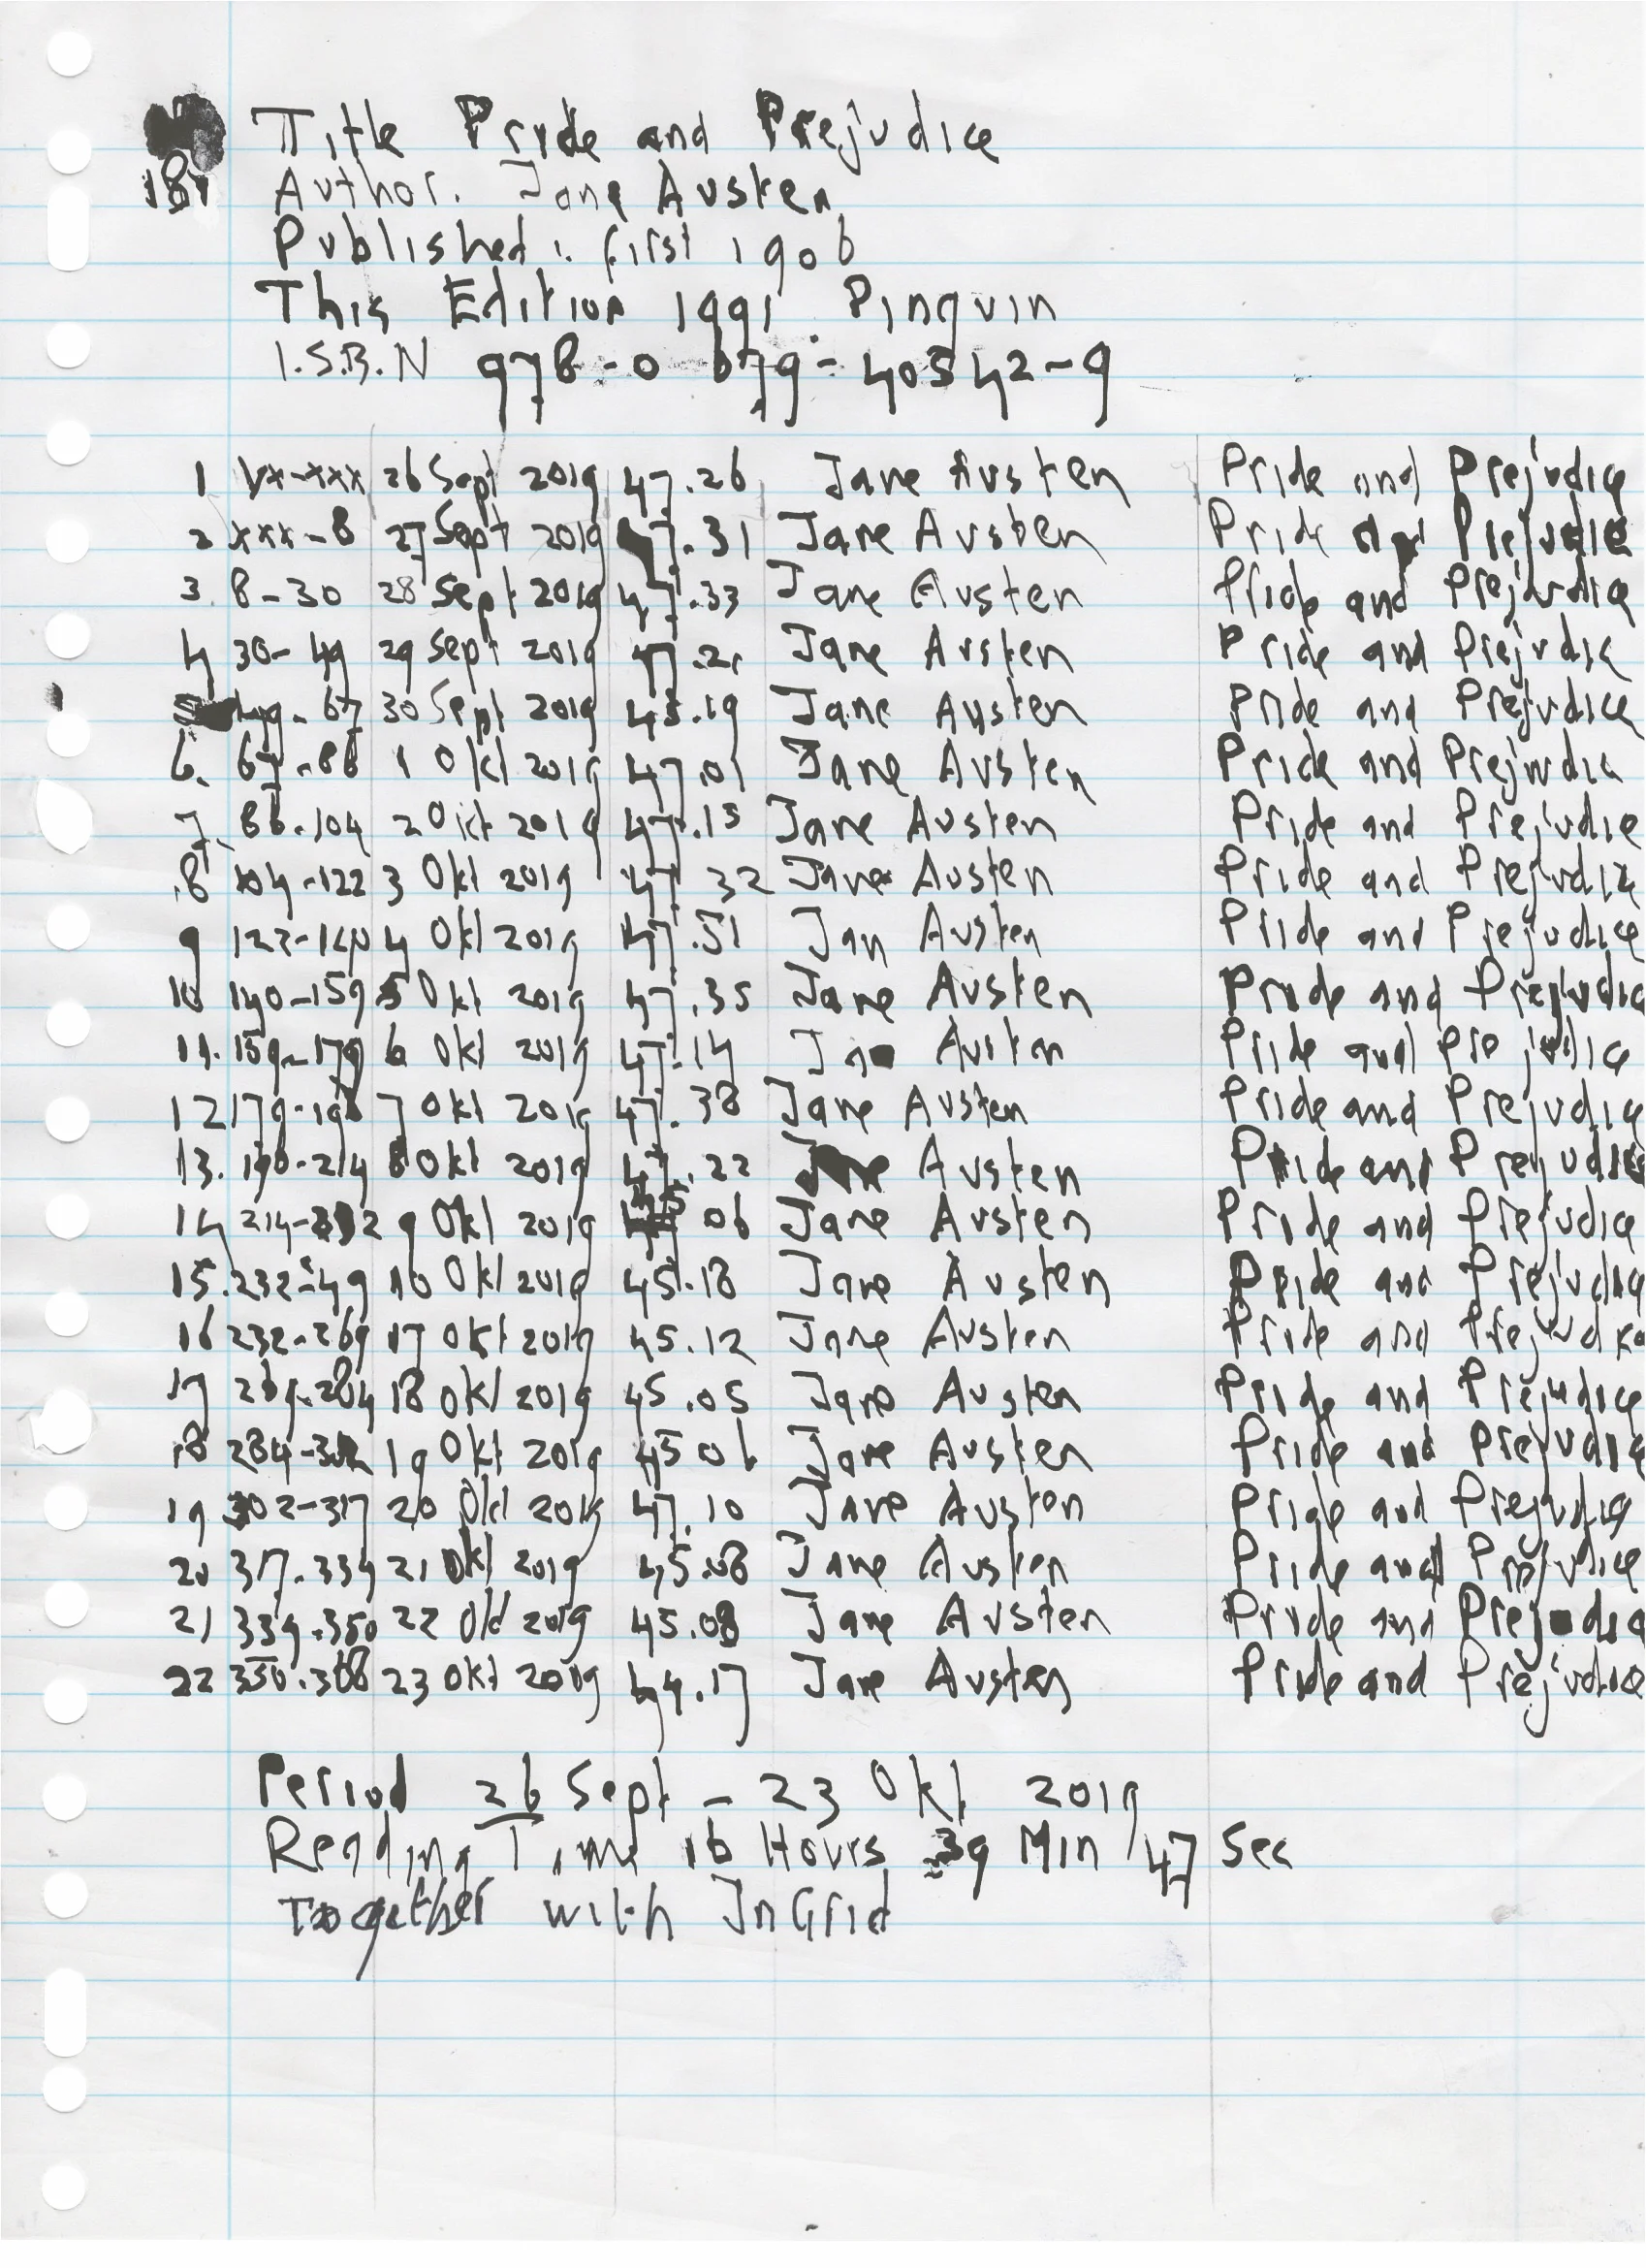 Title Pride and Prejudice
181 Author. Jane Austen
Published: first 1906
This Edition 1991. Pinguin
I.S.B.N 978-0-679-40542-9
1 xx-xxx 26 Sept 2019 47.26 Jane Austen Pride and Prejudice
2 xxx-8 27 Sept 2019 47.31 Jane Austen Pride and Prejudice
3. 8-30 28 Sept 2019 47.33 Jane Austen Pride and Prejudice
4 30-49 29 Sept 2019 47.21 Jane Austen Pride and Prejudice
49-67 30 Sept 2019 45.19 Jane Austen Pride and Prejudice
6. 67-86 1 Okt 2019 47.01 Jane Austen Pride and Prejudice
7. 86-104 2 Okt 2019 47.15 Jane Austen Pride and Prejudice
8 104-122 3 Okt 2019 47.32 Jane Austen Pride and Prejudice
9 122-140 4 Okt 2019 47.51 Jan Austen Pride and Prejudice
10 140-159 5 Okt 2019 47.35 Jane Austen Pride and Prejudice
11. 159-179 6 Okt 2019 47.14 Austen Pride and Prejudice
12 179-196 7 Okt 2019 47.38 Jane Austen Pride and Prejudice
13. 196-214 8 Okt 2019 47.22 Jane Austen Pride and Prejudice
14 214-232 9 Okt 2019 06 Jane Austen Pride and Prejudice
15. 232-49 10 Okt 2019 45.18 Jane Austen Pride and Prejudice
16 232-269 17 Okt 2019 45.12 Jane Austen Pride and Prejudice
17 269-284 18 Okt 2019 45.05 Jane Austen Pride and Prejudice
18 284-302 19 Okt 2019 45 06 Jane Austen Pride and Prejudice
19 302-317 20 Okt 2019 47.10 Jane Austen Pride and Prejudice
20 317-334 21 Okt 2019 45.08 Jane Austen Pride and Prejudice
21 334-350 22 Okt 2019 45.08 Jane Austen Pride and Prejudice
22 350-368 23 Okt 2019 44.17 Jane Austen Pride and Prejudice
Period 26 Sept - 23 Okt 2019
Reading Time 16 Hours 39 Min 47 Sec
Together with InGrid